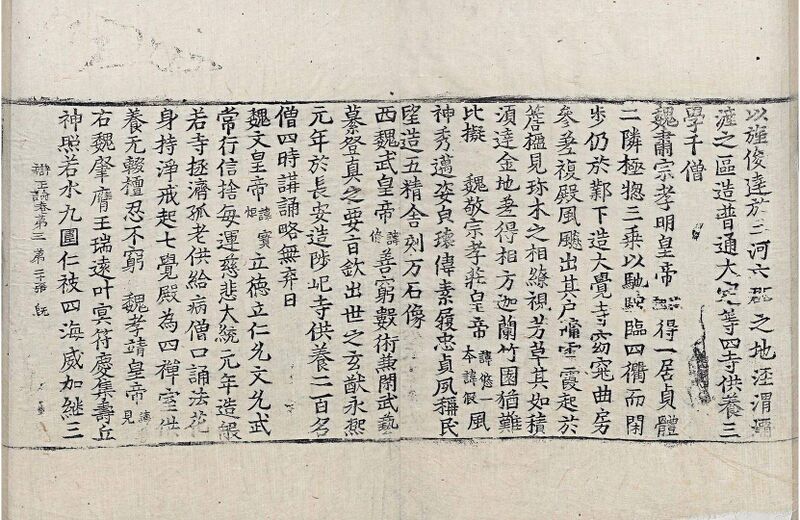 以旌俊逹於三河六郡之地涇渭
之區造普通大㝎等四寺供養三
學千僧
魏肅宗孝明皇帝 得一居貞體
二隣極揔三乘以馳駿臨四衢而閑
步仍於鄴下造大覺寺窈窕曲房
叅差複殿風飈出其戶牖雲霞起於
簷楹見珎木之相繚視芳草其如積
須達金地差得相方迦蘭竹園猶難
比擬 魏敬宗孝莊皇帝 諱悠一本諱假 風
神秀邁姿貞瓌偉素履忠貞夙稱民
望造五精舍刻万石像
西魏武皇帝 諱脩 善窮數術兼閑武藝
慕登真之要旨欽出世之玄猷永熙
元年於長安造陟屺寺供養二百名
僧四時講誦略無弃日
魏文皇帝 諱寶炬 立德立仁允文允武
常行信捨每運慈悲大統元年造般
若寺拯濟孤老供給病僧口誦法花
身持淨戒起七覺殿為四禪室供
養无輟檀忍不窮 魏孝靖皇帝 諱見
右魏肇膺王瑞遠叶冥符慶集壽丘
神照若水九圍仁被四海威加継三
辯正論卷第三 第二十張 既